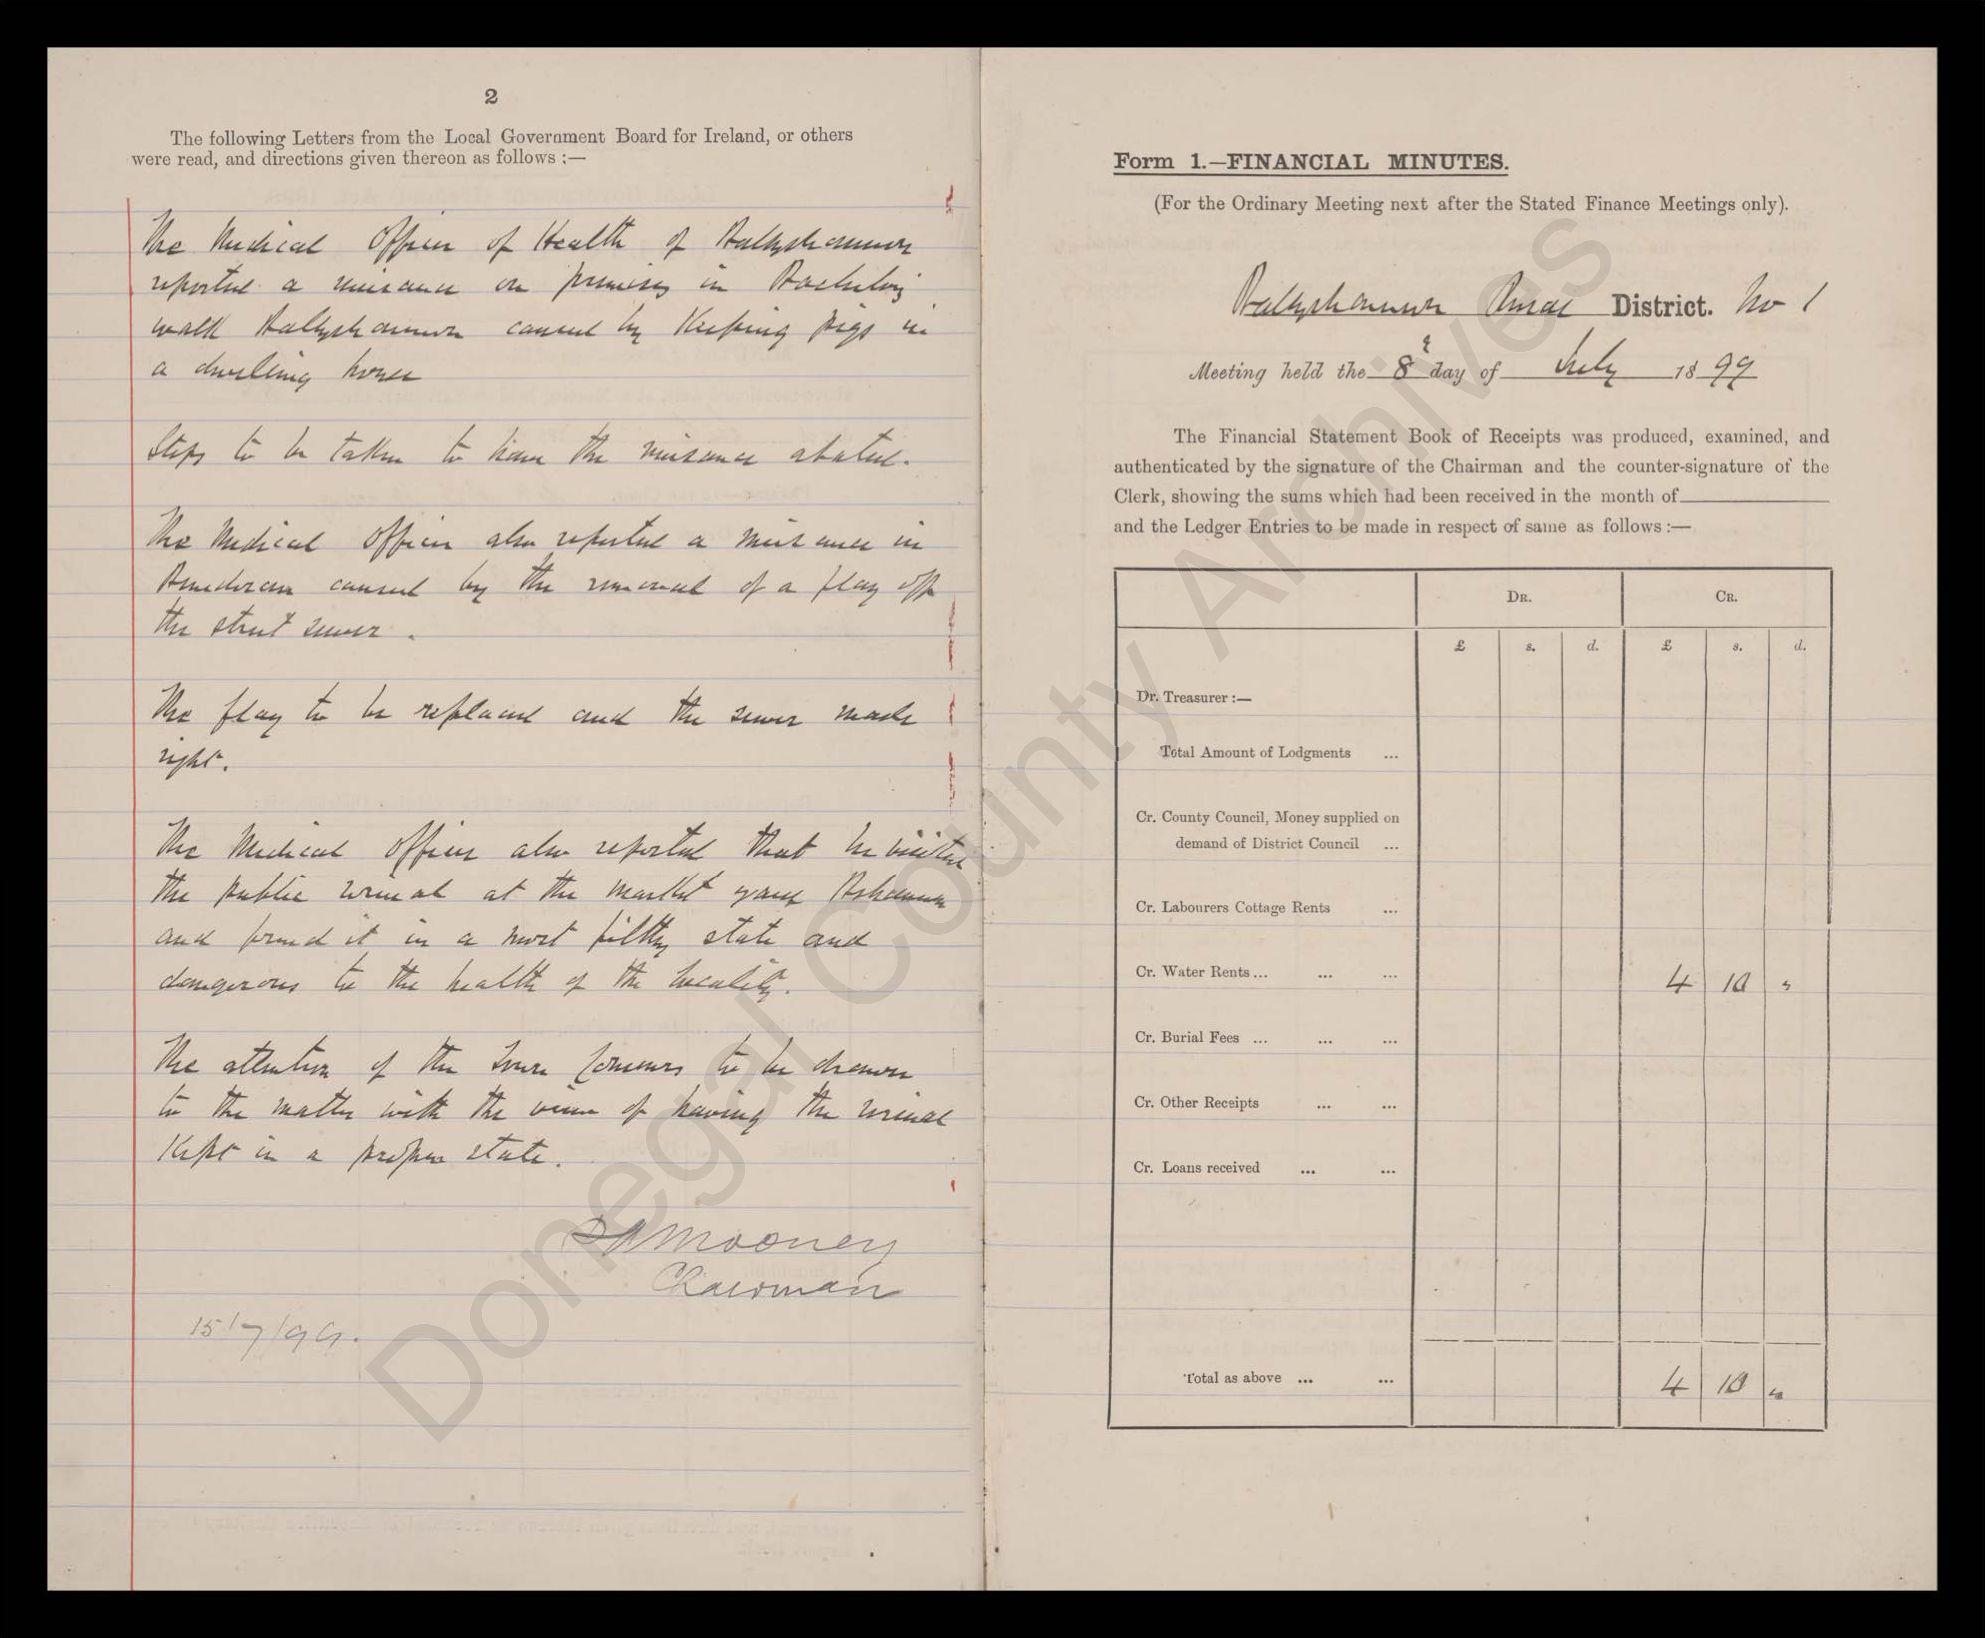 2
The following Letters from the Local Government Board for Ireland, or others
were read, and directions given thereon as follows :—
The Medical Officer of Health of Ballyshannon
reported a nuisance on premises in Bachelors
walk Ballyshannon caused by Keeping pigs in
a dwelling house
Steps to be taken to have the nuisance abated.
The Medical Officer also reported a nuisance in
caused by the removal of a flag off
the street sewer.
The flag to be replaced and the sewer made
right.
The Medical Officer also reported that he visited
the public urinal at the market yard Bshannon
and found it in a most filthy state and
dangerous to the health of the locality.
The attention of the Town Comrs to be drawn
to the matter with the view of having the urinal
Kept in a proper state.
Mooney
Chairman
15/7/99.
Form 1.—FINANCIAL MINUTES.
(For the Ordinary Meeting next after the Stated Finance Meetings only).
Ballyshannon Rural District. No 1
Meeting held the 8 day of July 1899
The Financial Statement Book of Receipts was produced, examined, and
authenticated by the signature of the Chairman and the counter-signature of the
Clerk, showing the sums which had been received in the month of
and the Ledger Entries to be made in respect of same as follows :—
DR. CR.
£ s. d. £ s. d.
Dr. Treasurer :—
Total Amount of Lodgments ...
Cr. County Council, Money supplied on
demand of District Council ...
Cr. Labourers Cottage Rents ...
Cr. Water Rents ... ... ... 4 10 "
Cr. Burial Fees ... ... ...
Cr. Other Receipts ... ...
Cr. Loans received ... ...
Total as above ... ... 4 10 "
Donegal County Archives